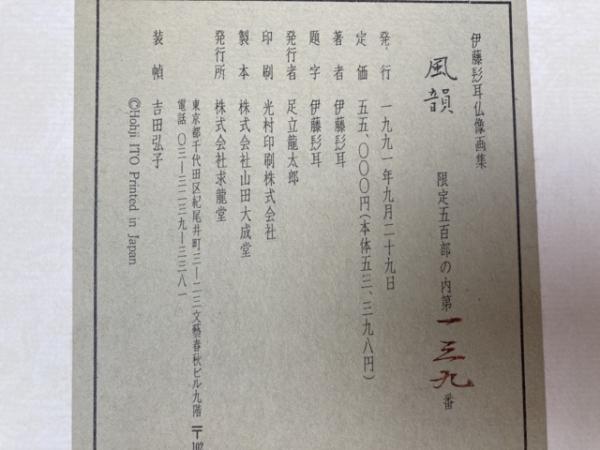 伊藤髟耳仏像画集
風韻
限定五百部の内第一三九番
発行 一九九一年九月二十九日
定価 五五、〇〇〇円(本体五三、三九八円)
著者 伊藤髟耳
題字 伊藤髟耳
発行者 足立龍太郎
印刷 光村印刷株式会社
製本 株式会社山田大成堂
発行所 株式会社求龍堂
東京都千代田区紀尾井町三―二三文藝春秋ビル九階 〒102
電話 〇三―三二三九―三三八一
装幀 吉田弘子
©Hobji ITO Printed in Japan